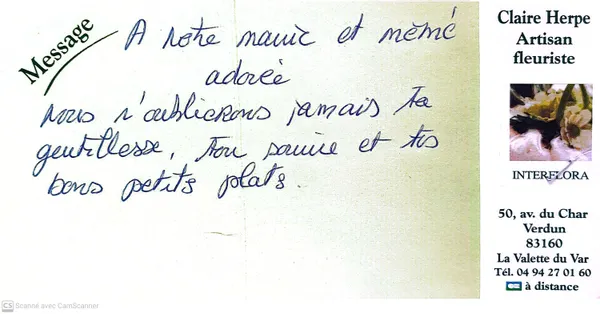 Message
A notre mamie et mémé
adorée
nous n'oublierons jamais ta
gentillesse, ton sourire et tes
bons petits plats.
Claire Herpe
Artisan
fleuriste
INTERFLORA
50, av. du Char
Verdun
83160
La Valette du Var
Tél. 04 94 27 01 60
à distance
CS Scanné avec CamScanner